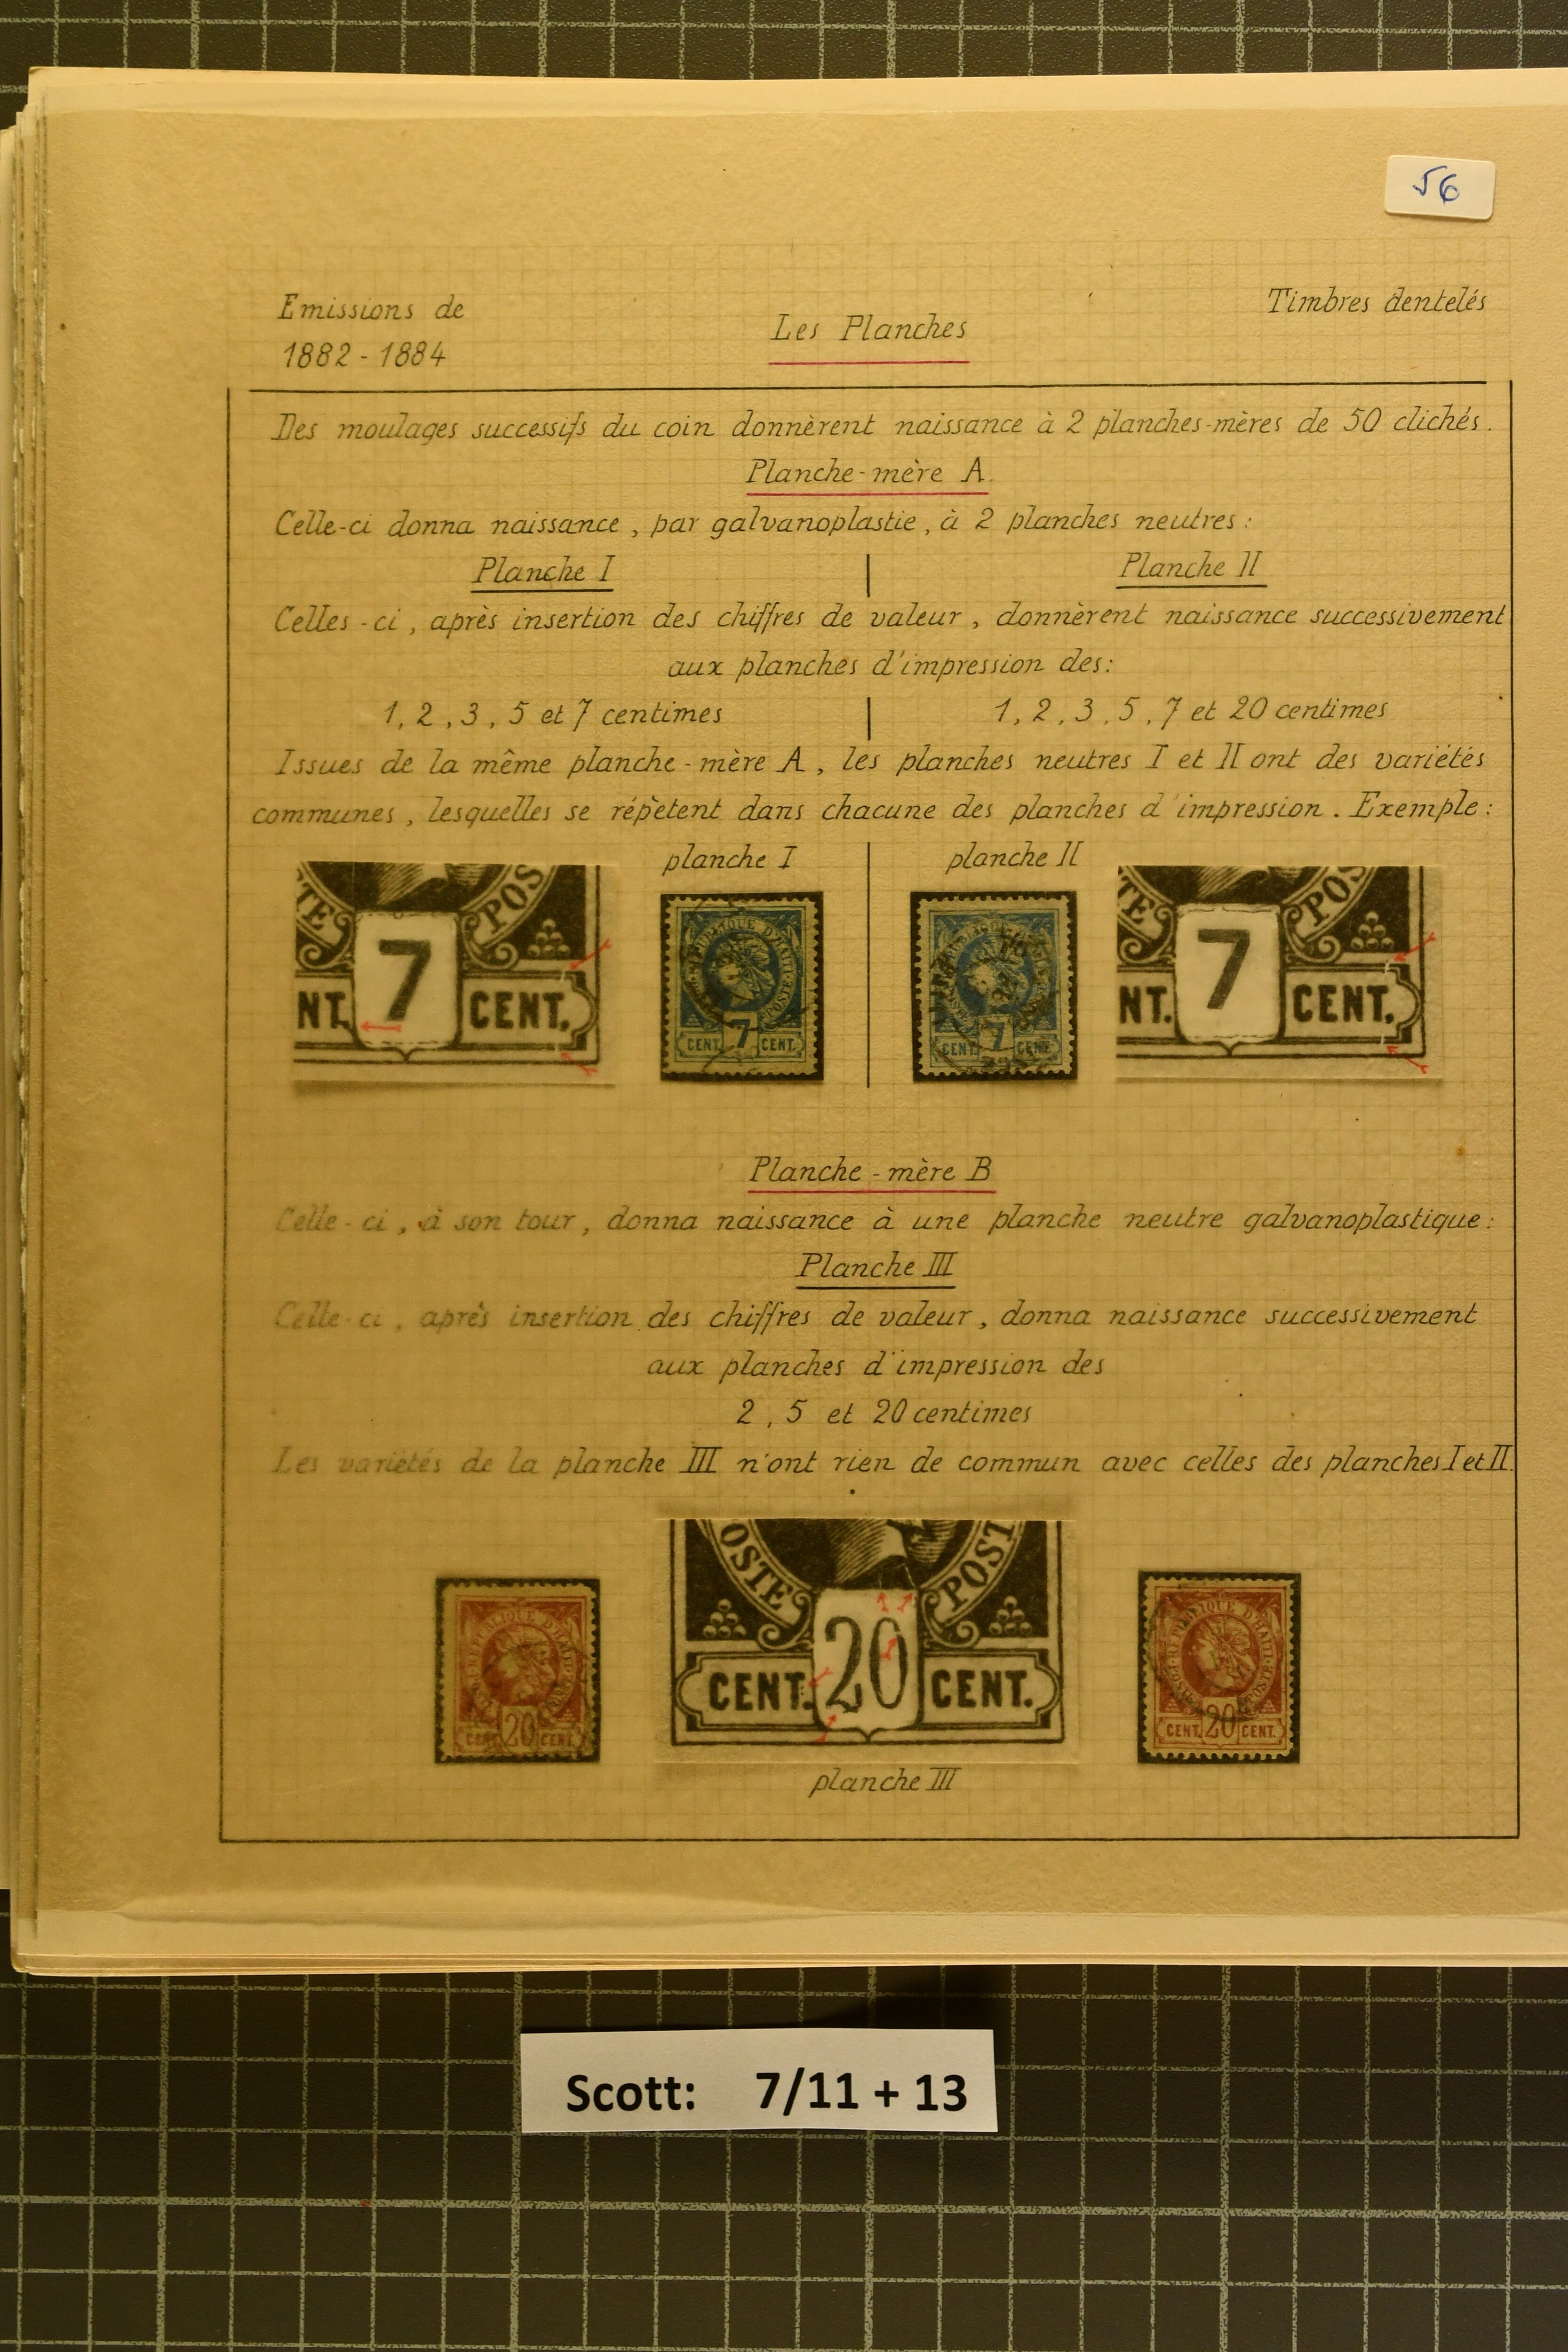 56
Emissions de
1882 - 1884
Les Planches
Timbres dentelés
Des moulages successifs du coin donnèrent naissance à 2 planches-mères de 50 clichés.
Planche-mère A.
Celle-ci donna naissance, par galvanoplastie, à 2 planches neutres:
Planche I
Planche II
Celles-ci, après insertion des chiffres de valeur, donnèrent naissance successivement
aux planches d'impression des:
1, 2, 3, 5 et 7 centimes
1, 2, 3, 5, 7 et 20 centimes
Issues de la même planche-mère A, les planches neutres I et II ont des variétés
communes, lesquelles se répètent dans chacune des planches d'impression. Exemple:
planche I
planche II
TE POS
NT. 7 CENT.
RÉPUBLIQUE D'HAITI
POSTE
CENT. 7 CENT.
CENT. 7 CENT.
TE POS
NT. 7 CENT.
Planche-mère B
Celle-ci, à son tour, donna naissance à une planche neutre galvanoplastique:
Planche III
Celle-ci, après insertion des chiffres de valeur, donna naissance successivement
aux planches d'impression des
2, 5 et 20 centimes
Les variétés de la planche III n'ont rien de commun avec celles des planches I et II.
RÉPUBLIQUE D'HAITI
CENT. 20 CENT.
OSTE POST
CENT. 20 CENT.
RÉPUBLIQUE D'HAITI
CENT. 20 CENT.
planche III
Scott: 7/11 + 13